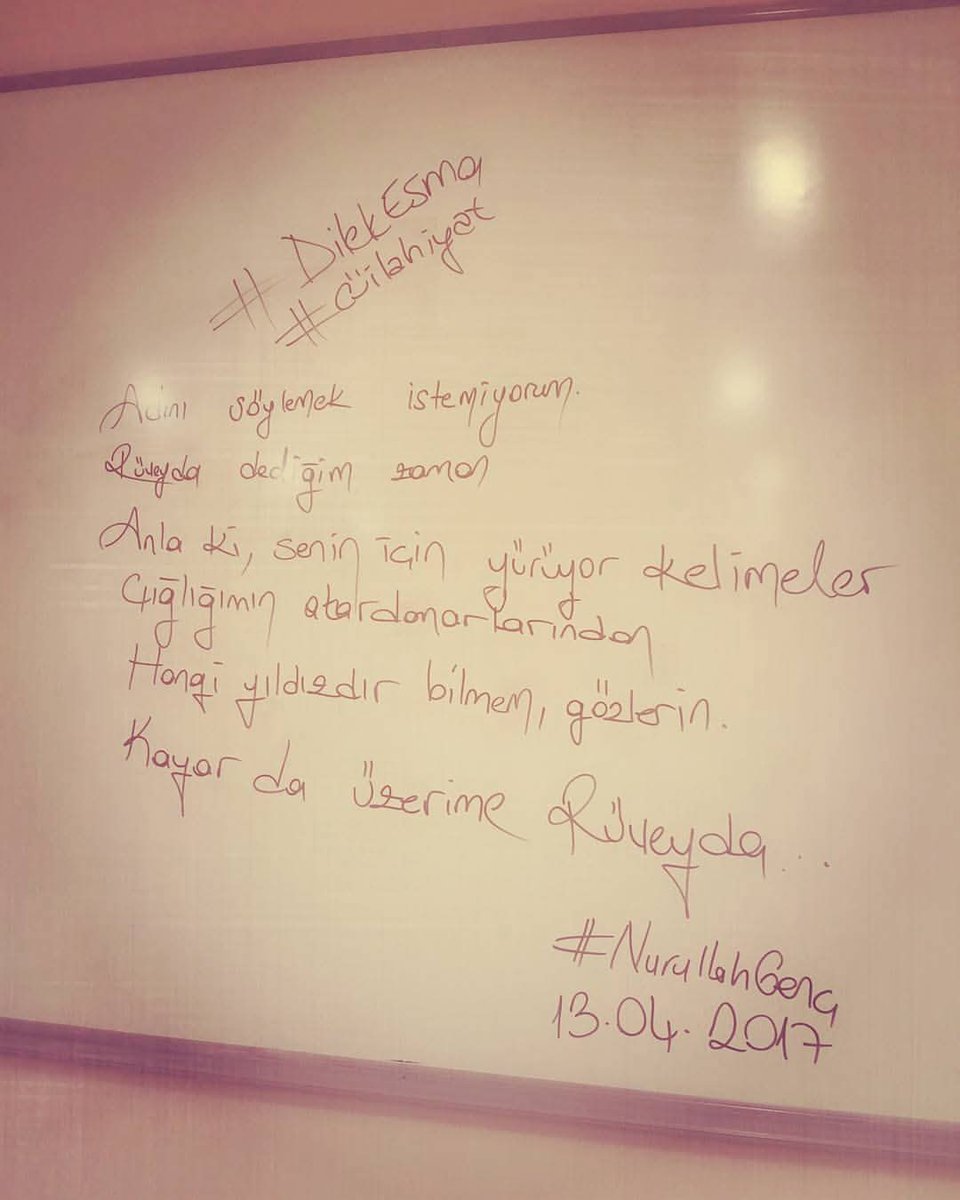 #DikkEsma
#Cüilahiyat
Adını söylemek istemiyorum.
Rüveyda dediğim zaman
Anla ki, senin için yürüyor kelimeler
Çığlığımın atardamarlarından
Hangi yıldızdır bilmem, gözlerin.
Kayar da üzerime Rüveyda...
#NurullahGenç
13.04.2017